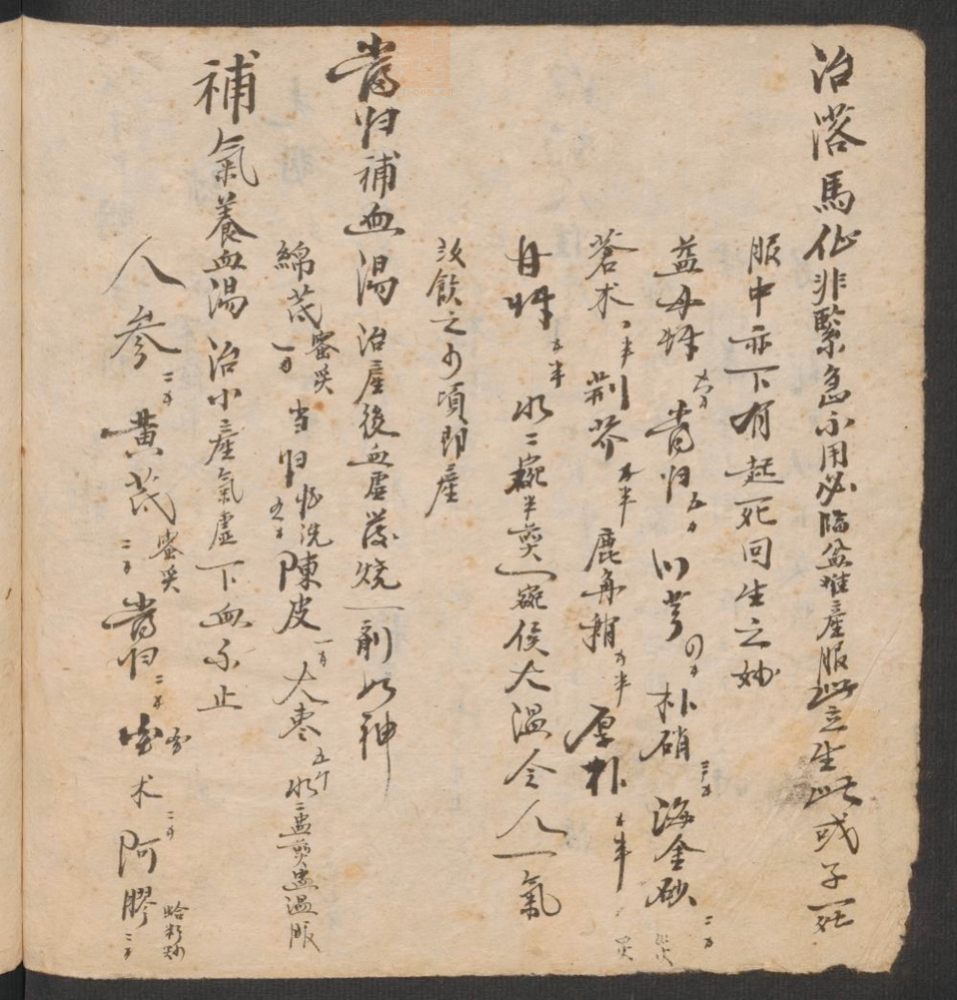 治落馬仙非緊急不用必臨盆難產服此立生此或子死
服中亦下有起死回生之妙
益母草 六钱 當归 五钱 川芎 四钱 朴硝 三钱 海金砂 二钱
蒼术 半 荆芥 钱半 鹿角稍 钱半 厚朴 钱半
甘草 钱半 水二碗半煎一碗侯大温令人一氣
飲之少頃即產
當归補血湯 治產後血虛發燒一剤如神
綿芪 蜜炙 一两 当归 酒洗 钱 陳皮 一钱 大枣 五个 水二盅煎盅温服
補氣養血湯 治小產氣虛下血不止
人參 二钱 黄芪 蜜炙 二钱 當归 二钱 白术 二钱 阿膠 蛤粉炒 二钱